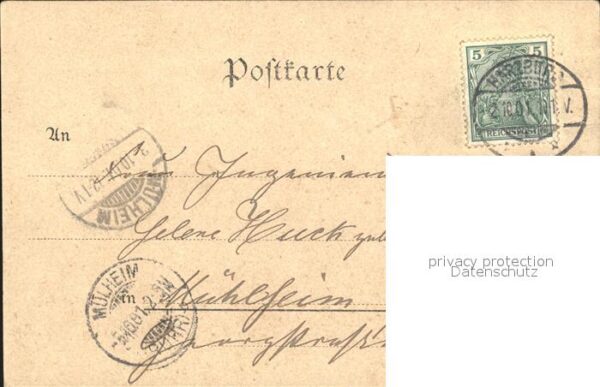 Postkarte
5 5
HARZBURG
2.10.01. 
REICHSPOST
An
MÜLHEIM
Frau Ingenieur
Helene Huck
MÜLHEIM
(RUHR)
in Mühlheim
Georgstraße
privacy protection
Datenschutz